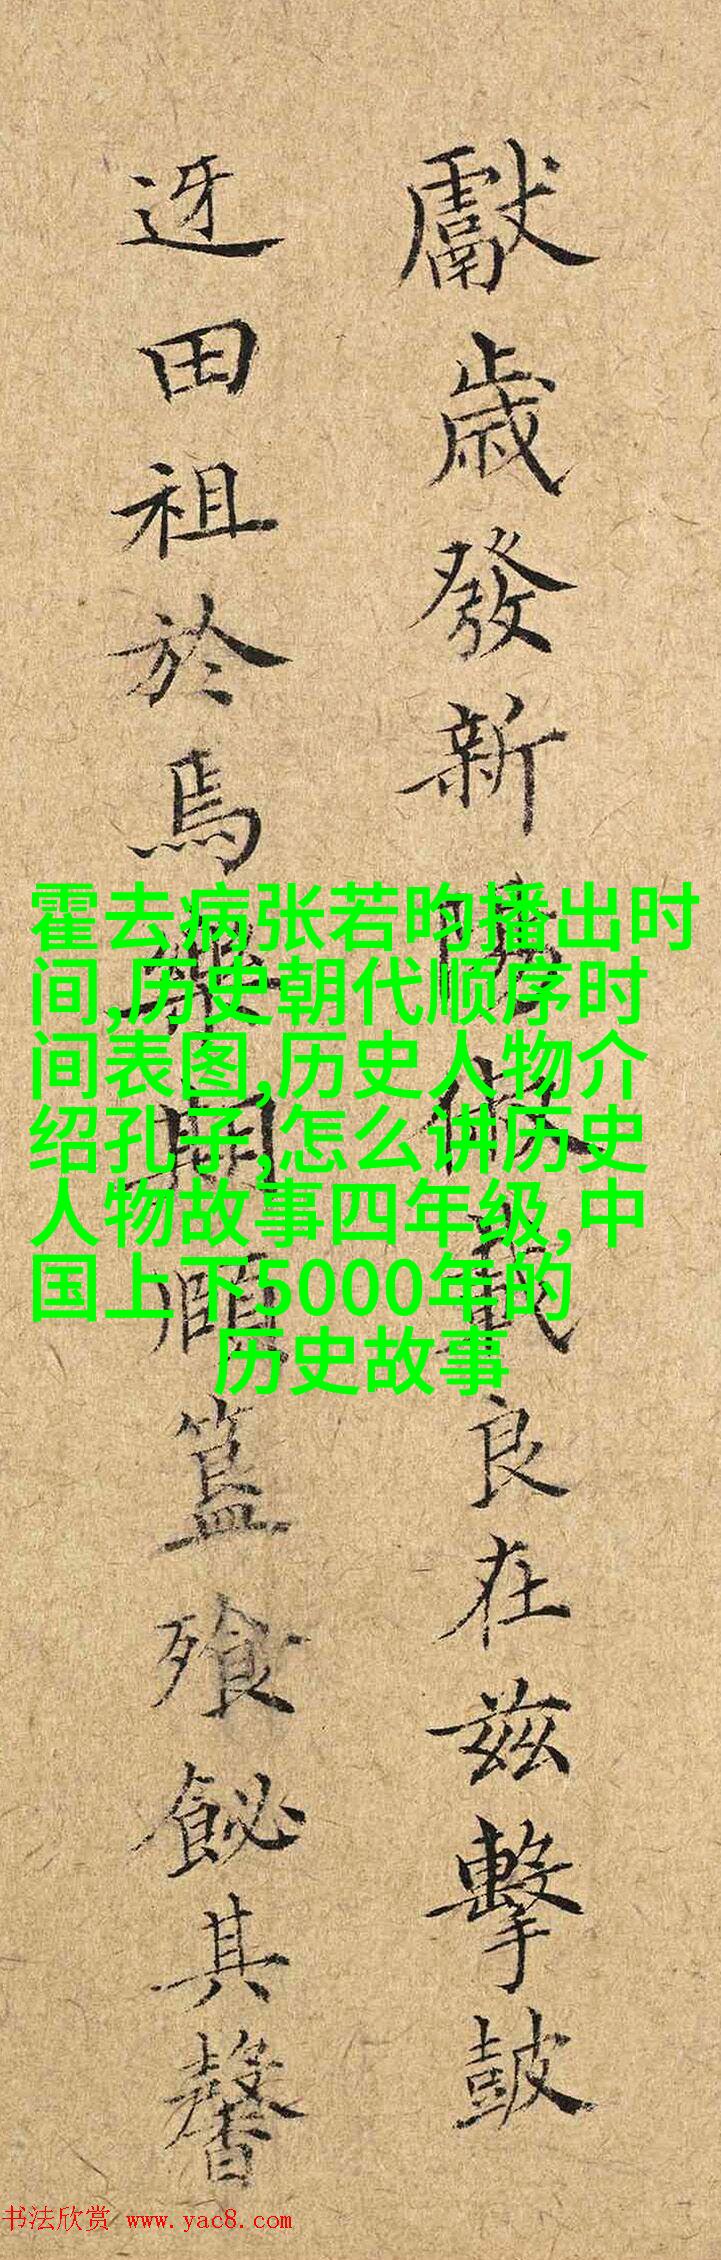 獻歲發新陽俶載良在兹擊鼓
迓田祖於焉簋飱飶其馨
霍去病张若昀播出时
间,历史朝代顺序时
间表图,历史人物介
绍孔子,怎么讲历史
人物故事四年级,中
国上下5000年的
历史故事
书法欣赏 www.yac8.com